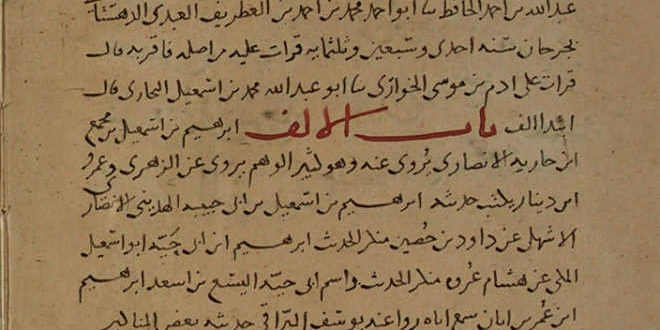 عبدالله بن احمد الحافظ ثنا ابو احمد محمد بن احمد بن الغطريف العبدى
بجرجان سنه احدى وسبعين وثلثمايه قرات عليه من اصله فاقر به قال
قرات على ادم بن موسى الخوارى ثنا ابو عبد الله محمد بن اسمعيل البخارى قال
ابتدا الف باب الالف ابرهيم بن اسمعيل بن مجمع
ابن جاريه الانصارى يُروى عنه وهو كثير الوهم يروى عن الزهرى وعمرو
ابن دينار يكتب حديثه ابرهيم بن اسمعيل بن ابى حبيبه الانصار
الاشهلى عن داود بن حُصين منكر الحديث ابرهيم ابن ابى حَيّه ابو اسمعيل
المكى عن هشام عُروه منكر الحديث واسم ابى حيّه اليسَع بن اسعد ابرهيم
ابن عُمر بن ابان سمع اباه روا عنه يوسف البرا فى حديثه بعض المناكير